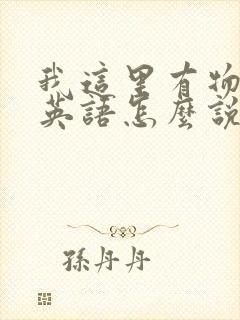 我這里有物
英語怎麼說
孫丹丹